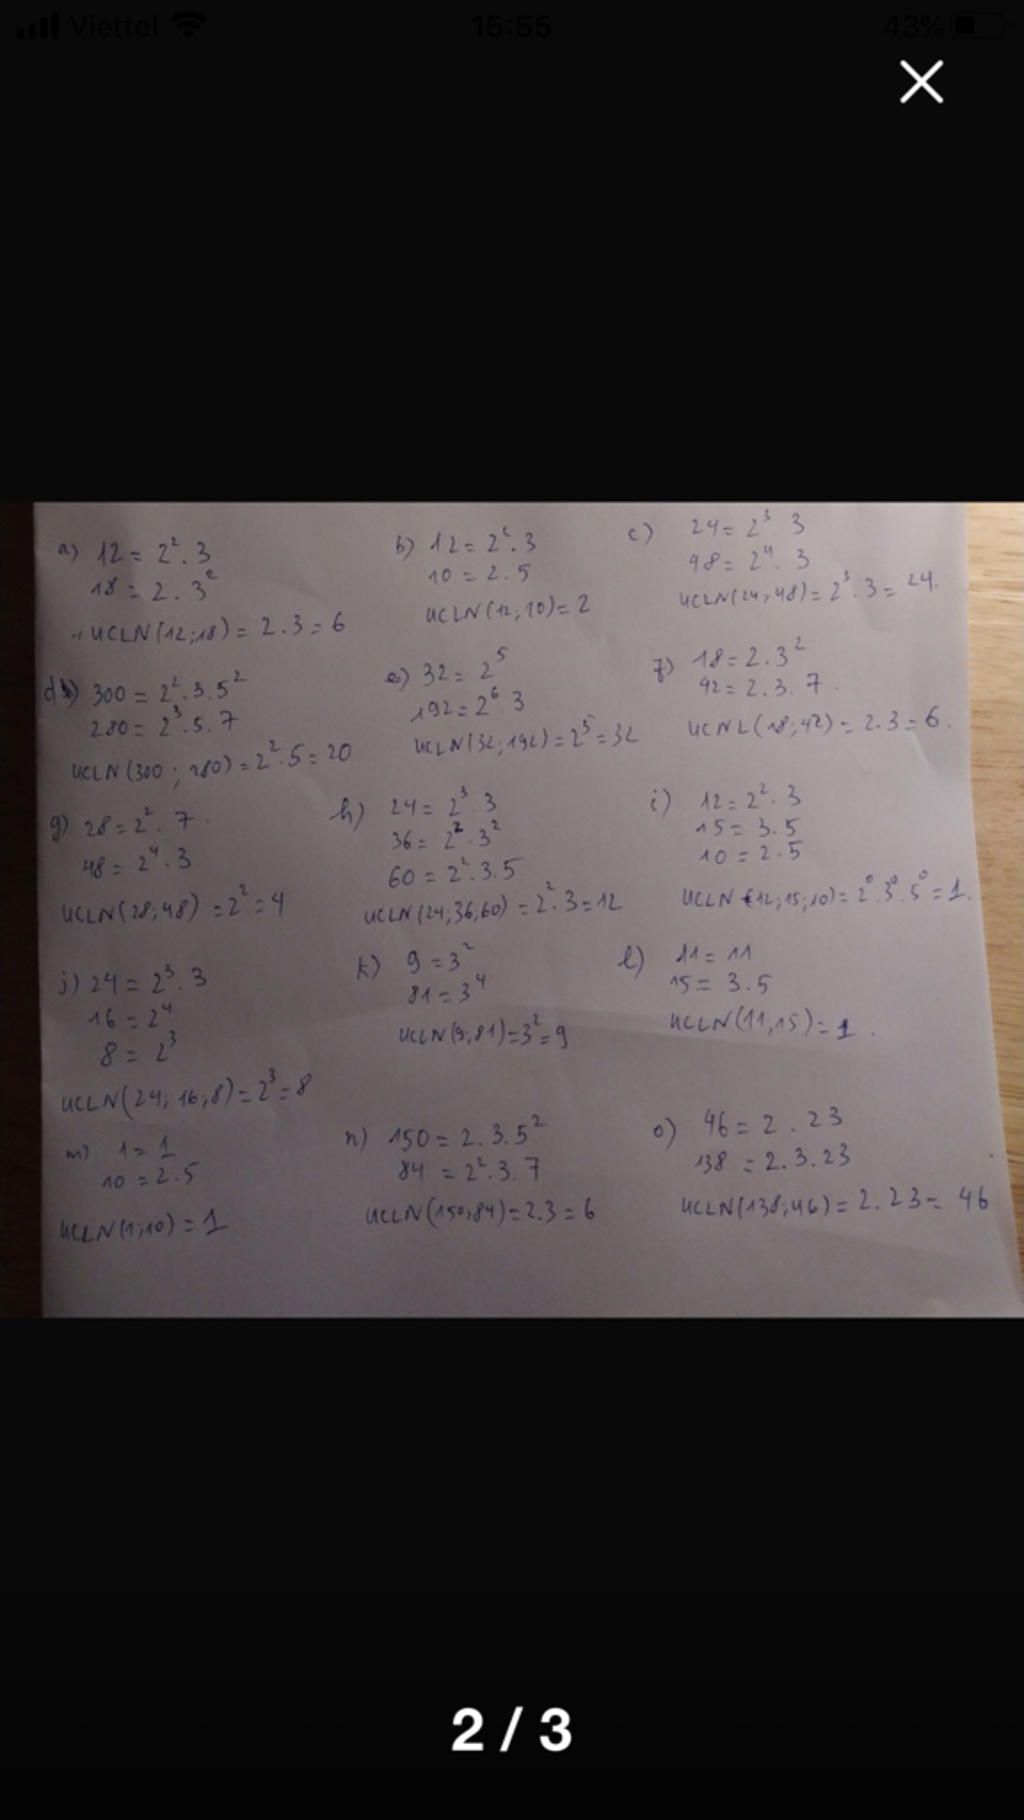 Viettel 15:55 43%
a) 12 = 2². 3
18 = 2. 3²
ƯCLN(12;18) = 2.3 = 6
b) 12 = 2². 3
10 = 2. 5
ƯCLN(12;10) = 2
c) 24 = 2³ 3
48 = 2⁴. 3
ƯCLN(24;48) = 2³. 3 = 24.
d) 300 = 2².3.5²
280 = 2³.5.7
ƯCLN(300; 280) = 2².5 = 20
e) 32 = 2⁵
192 = 2⁶.3
ƯCLN(32;192) = 2⁵ = 32
f) 18 = 2.3²
42 = 2.3.7.
ƯCNL(18;42) = 2.3 = 6.
g) 28 = 2². 7.
48 = 2⁴.3
ƯCLN(28;48) = 2² = 4
h) 24 = 2³.3
36 = 2².3²
60 = 2².3.5
ƯCLN(24;36,60) = 2².3 = 12
i) 12 = 2². 3
15 = 3.5
10 = 2.5
ƯCLN(12;15;10) = 2⁰.3⁰.5⁰ = 1.
j) 24 = 2³. 3
16 = 2⁴
8 = 2³
ƯCLN(24; 16;8) = 2³ = 8
k) 9 = 3²
81 = 3⁴
ƯCLN(9;81) = 3² = 9
l) 11 = 11
15 = 3.5
ƯCLN(11;15) = 1.
m) 1 = 1
10 = 2.5
ƯCLN(1;10) = 1
n) 150 = 2.3.5²
84 = 2².3.7
ƯCLN(150;84) = 2.3 = 6
o) 46 = 2. 23
138 = 2.3.23
ƯCLN(138;46) = 2.23 = 46
2 / 3